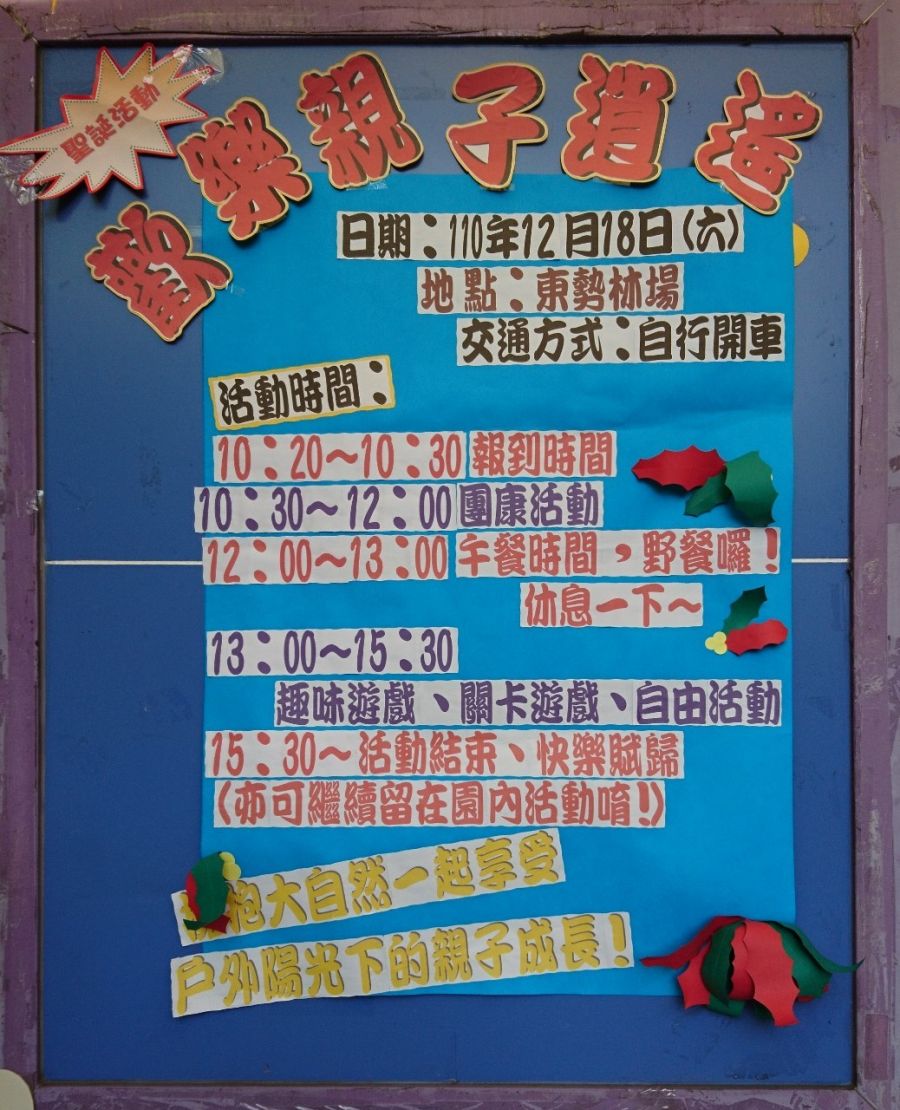 聖誕活動
歡樂親子逍遙
日期：110年12月18日(六)
地點：東勢林場
交通方式：自行開車
活動時間：
10：20～10：30 報到時間
10：30～12：00 團康活動
12：00～13：00 午餐時間，野餐囉！
休息一下～
13：00～15：30
趣味遊戲、關卡遊戲、自由活動
15：30～活動結束、快樂賦歸
(亦可繼續留在園內活動唷！)
抱大自然一起享受
戶外陽光下的親子成長！